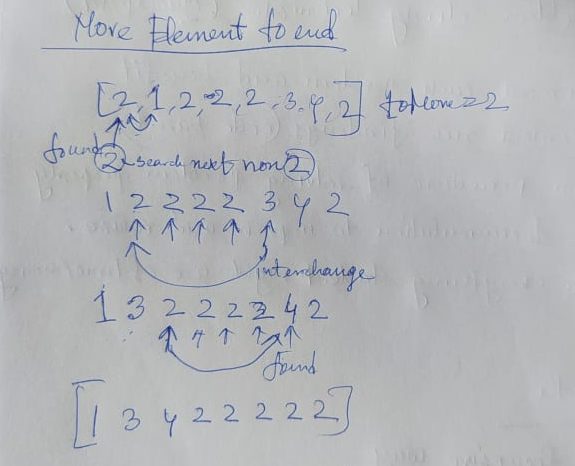 Move Element to end
[2, 1, 2, 2, 2, 3, 4, 2] toMove = 2
found 2 search next non 2
1 2 2 2 2 3 4 2
interchange
1 3 2 2 2 2 4 2
found
[1 3 4 2 2 2 2 2]